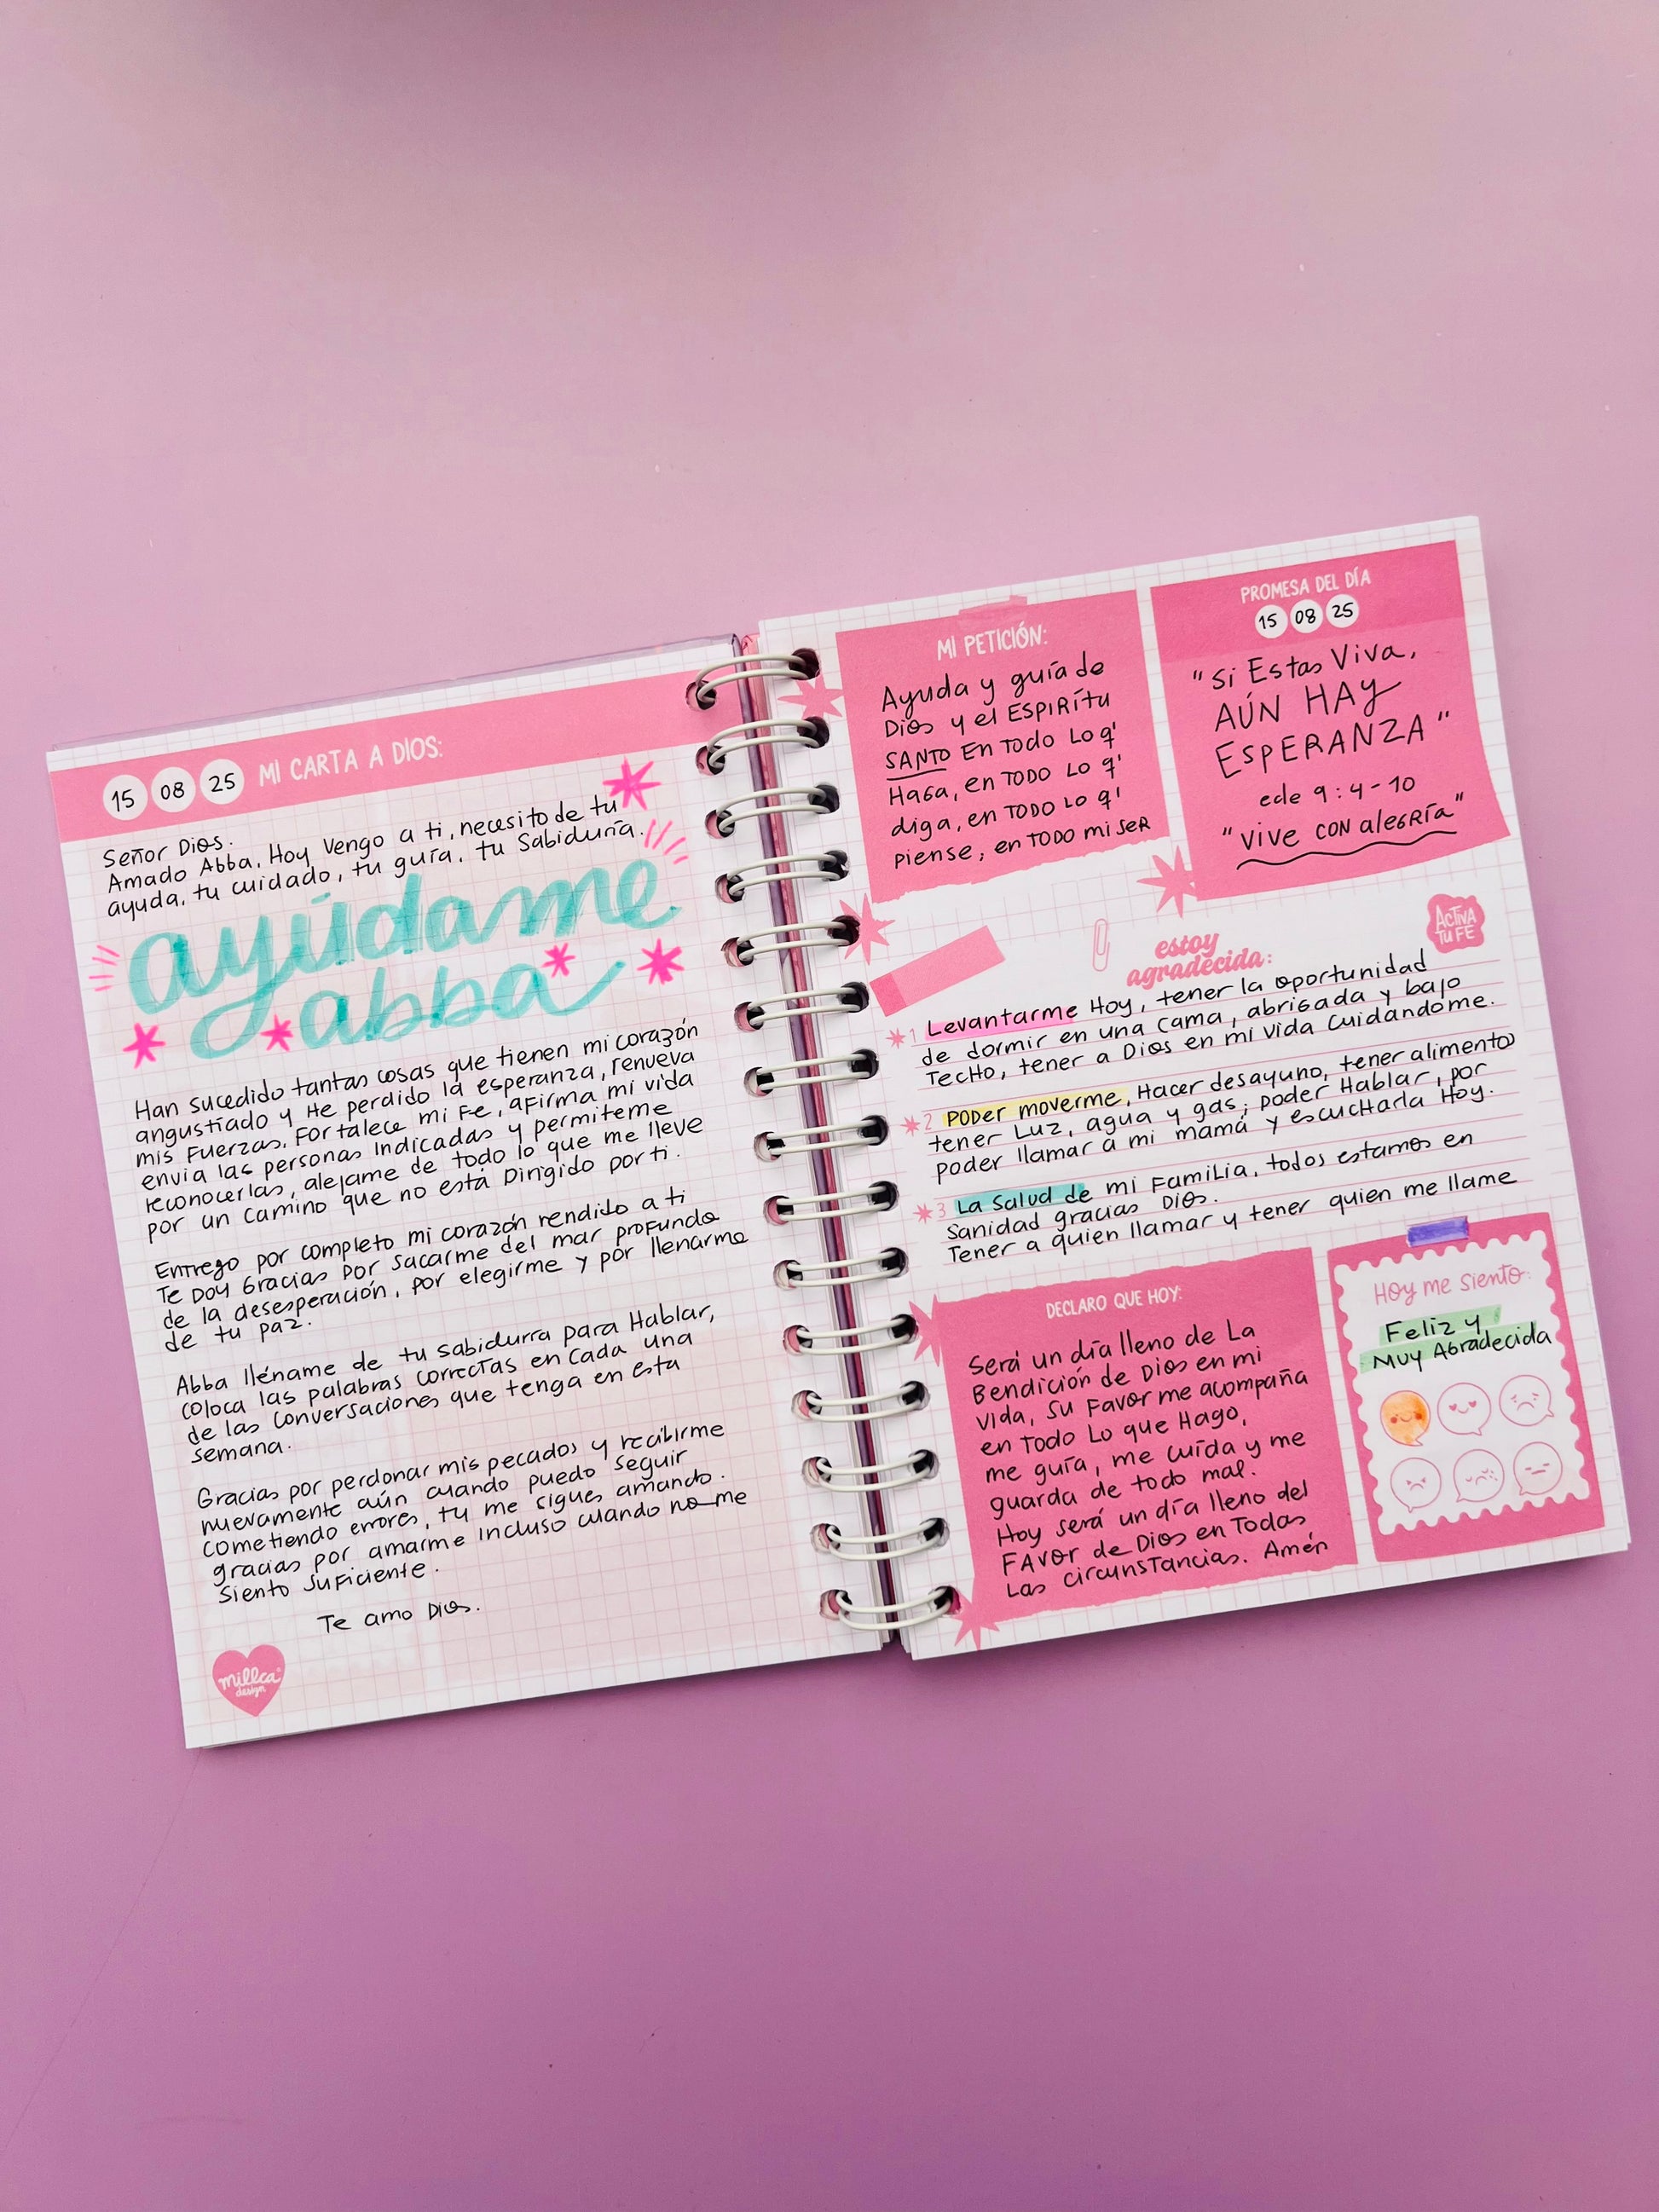 15 08 25 MI CARTA A DIOS:
Señor Dios.
Amado Abba. Hoy vengo a ti, necesito de tu
ayuda, tu cuidado, tu guía. tu Sabiduría.
ayúdame
abba
Han sucedido tantas cosas que tienen mi corazón
angustiado y He perdido la esperanza, renueva
mis Fuerzas. Fortalece mi Fe, aFirma mi vida
envia las personas indicadas y permiteme
reconocerlas, alejame de todo lo que me lleve
por un camino que no está Dirigido por ti.
Entrego por completo mi corazón rendido a ti
Te Doy Gracias por sacarme del mar profundo
de la desesperación, por elegirme y por llenarme
de tu paz.
Abba lléname de tu sabidurra para Hablar,
coloca las palabras correctas en cada una
de las conversaciones que tenga en esta
semana.
Gracias por perdonar mis pecados y recibirme
nuevamente aún cuando puedo seguir
cometiendo errores, tu me sigues amando.
gracias por amarme incluso cuando no me
siento suFiciente.
Te amo Dios.
millca
design
MI PETICIÓN:
Ayuda y guía de
Dios y el ESPIRítu
SANTO En Todo Lo q'
Haga, en TODO Lo q'
diga, en TODO Lo q'
piense, en TODO mi SER
PROMESA DEL DÍA
15 08 25
"Si Estas Viva,
AÚN HAY
ESPERANZA"
ecle 9:4-10
"vive CON alegRía"
ACTIVA
TU FE
estoy
agradecida:
1 Levantarme Hoy, tener la oportunidad
de dormir en una cama, abrigada y bajo
TecHo, tener a Dios en mi vida cuidándome.
2 PODER moverme, Hacer desayuno, tener alimento
tener Luz, agua y gas, poder Hablar, por
poder llamar a mi mamá y escucHarla Hoy.
3 La salud de mi Familia, todos estamos en
sanidad gracias Dios.
Tener a quien llamar y tener quien me llame
DECLARO QUE HOY:
Será un día lleno de La
Bendición de Dios en mi
vida, su Favor me acompaña
en Todo Lo que Hago,
me guía, me cuida y me
guarda de todo mal.
Hoy será un día lleno del
FAVor de Dios en Todas
Las circunsTancias. Amén
Hoy me siento:
Feliz y
Muy AGradecida